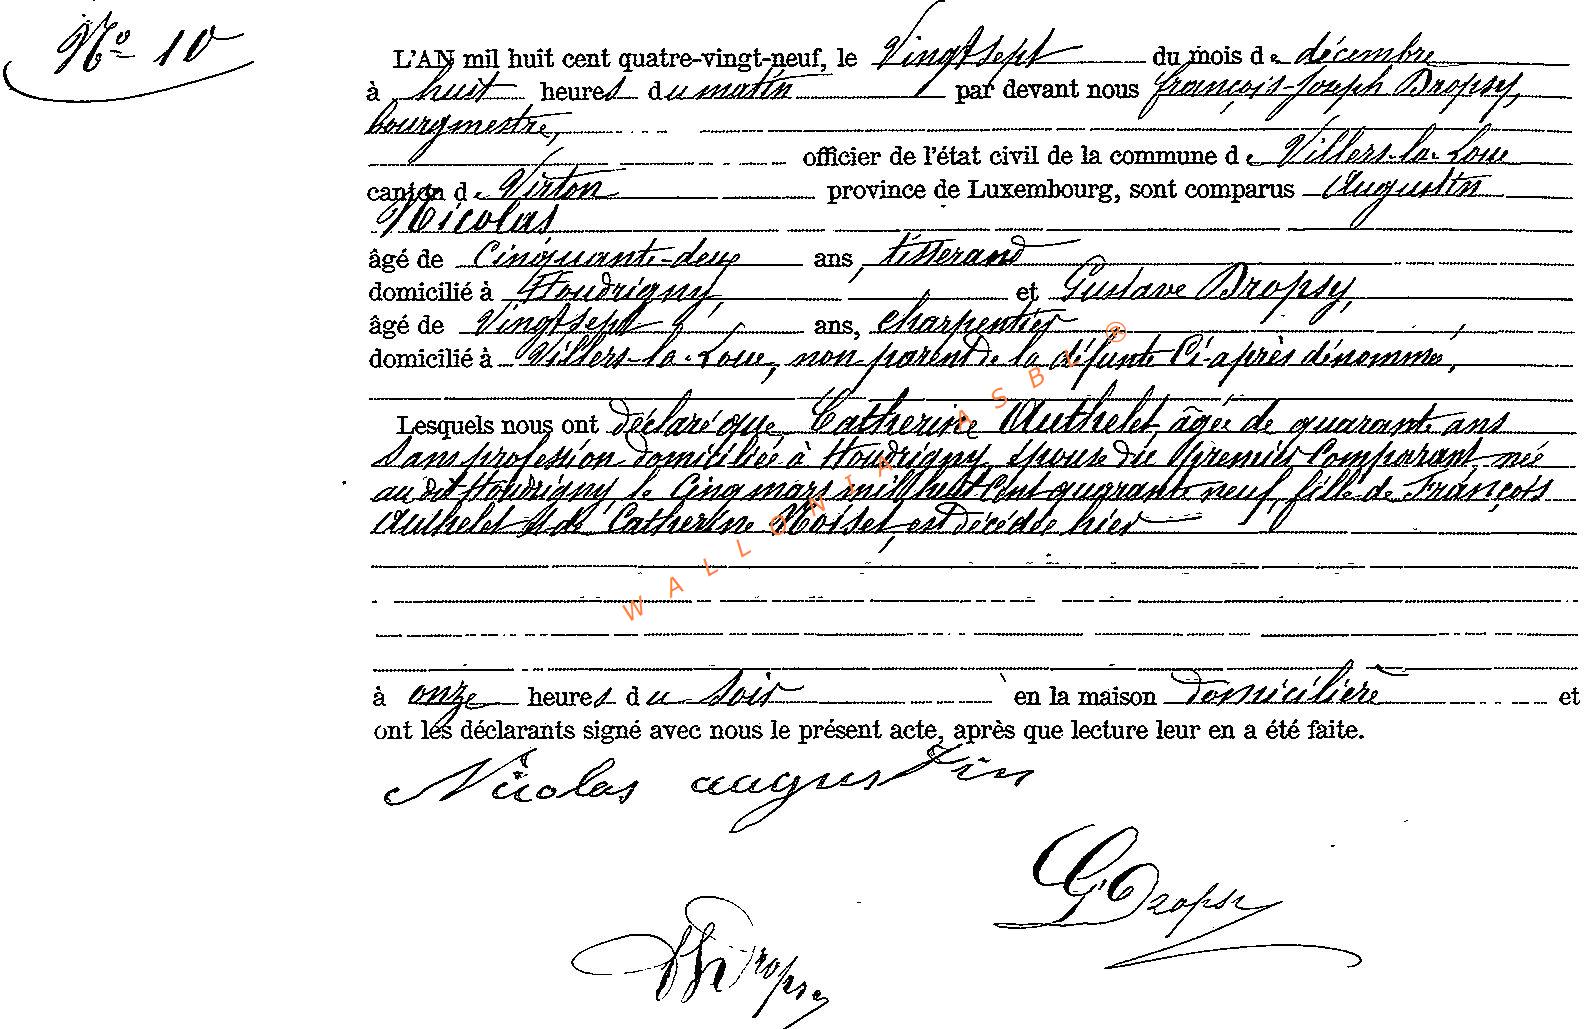 No 10
L'AN mil huit cent quatre-vingt-neuf, le Vingtsept du mois de décembre
à huit heures du matin par devant nous françois-Joseph Dropsy,
bourgmestre,
officier de l'état civil de la commune de Villers-la-Loue
canton de Virton province de Luxembourg, sont comparus Augustin
Nicolas
âgé de Cinquante-deux ans, tisserand
domicilié à Houdrigny, et Gustave Dropsy,
âgé de Vingtsept ans, charpentier
domicilié à Villers-la-Loue, non parent de la défunte Ci-après dénommé,
Lesquels nous ont déclaré que Catherine Authelet, âgée de quarante ans
Sans profession domiciliée à Houdrigny, épouse du Premier Comparant, née
au dit Houdrigny, le Cinq mars mil huit Cent quarante neuf, fille de François
Authelet & de Catherine Noisel, est décédée hier
à onze heures du soir en la maison domicilière et
ont les déclarants signé avec nous le présent acte, après que lecture leur en a été faite.
Nicolas augustin
G Dropsy
Dropsy
WALLONIA ASBL ®